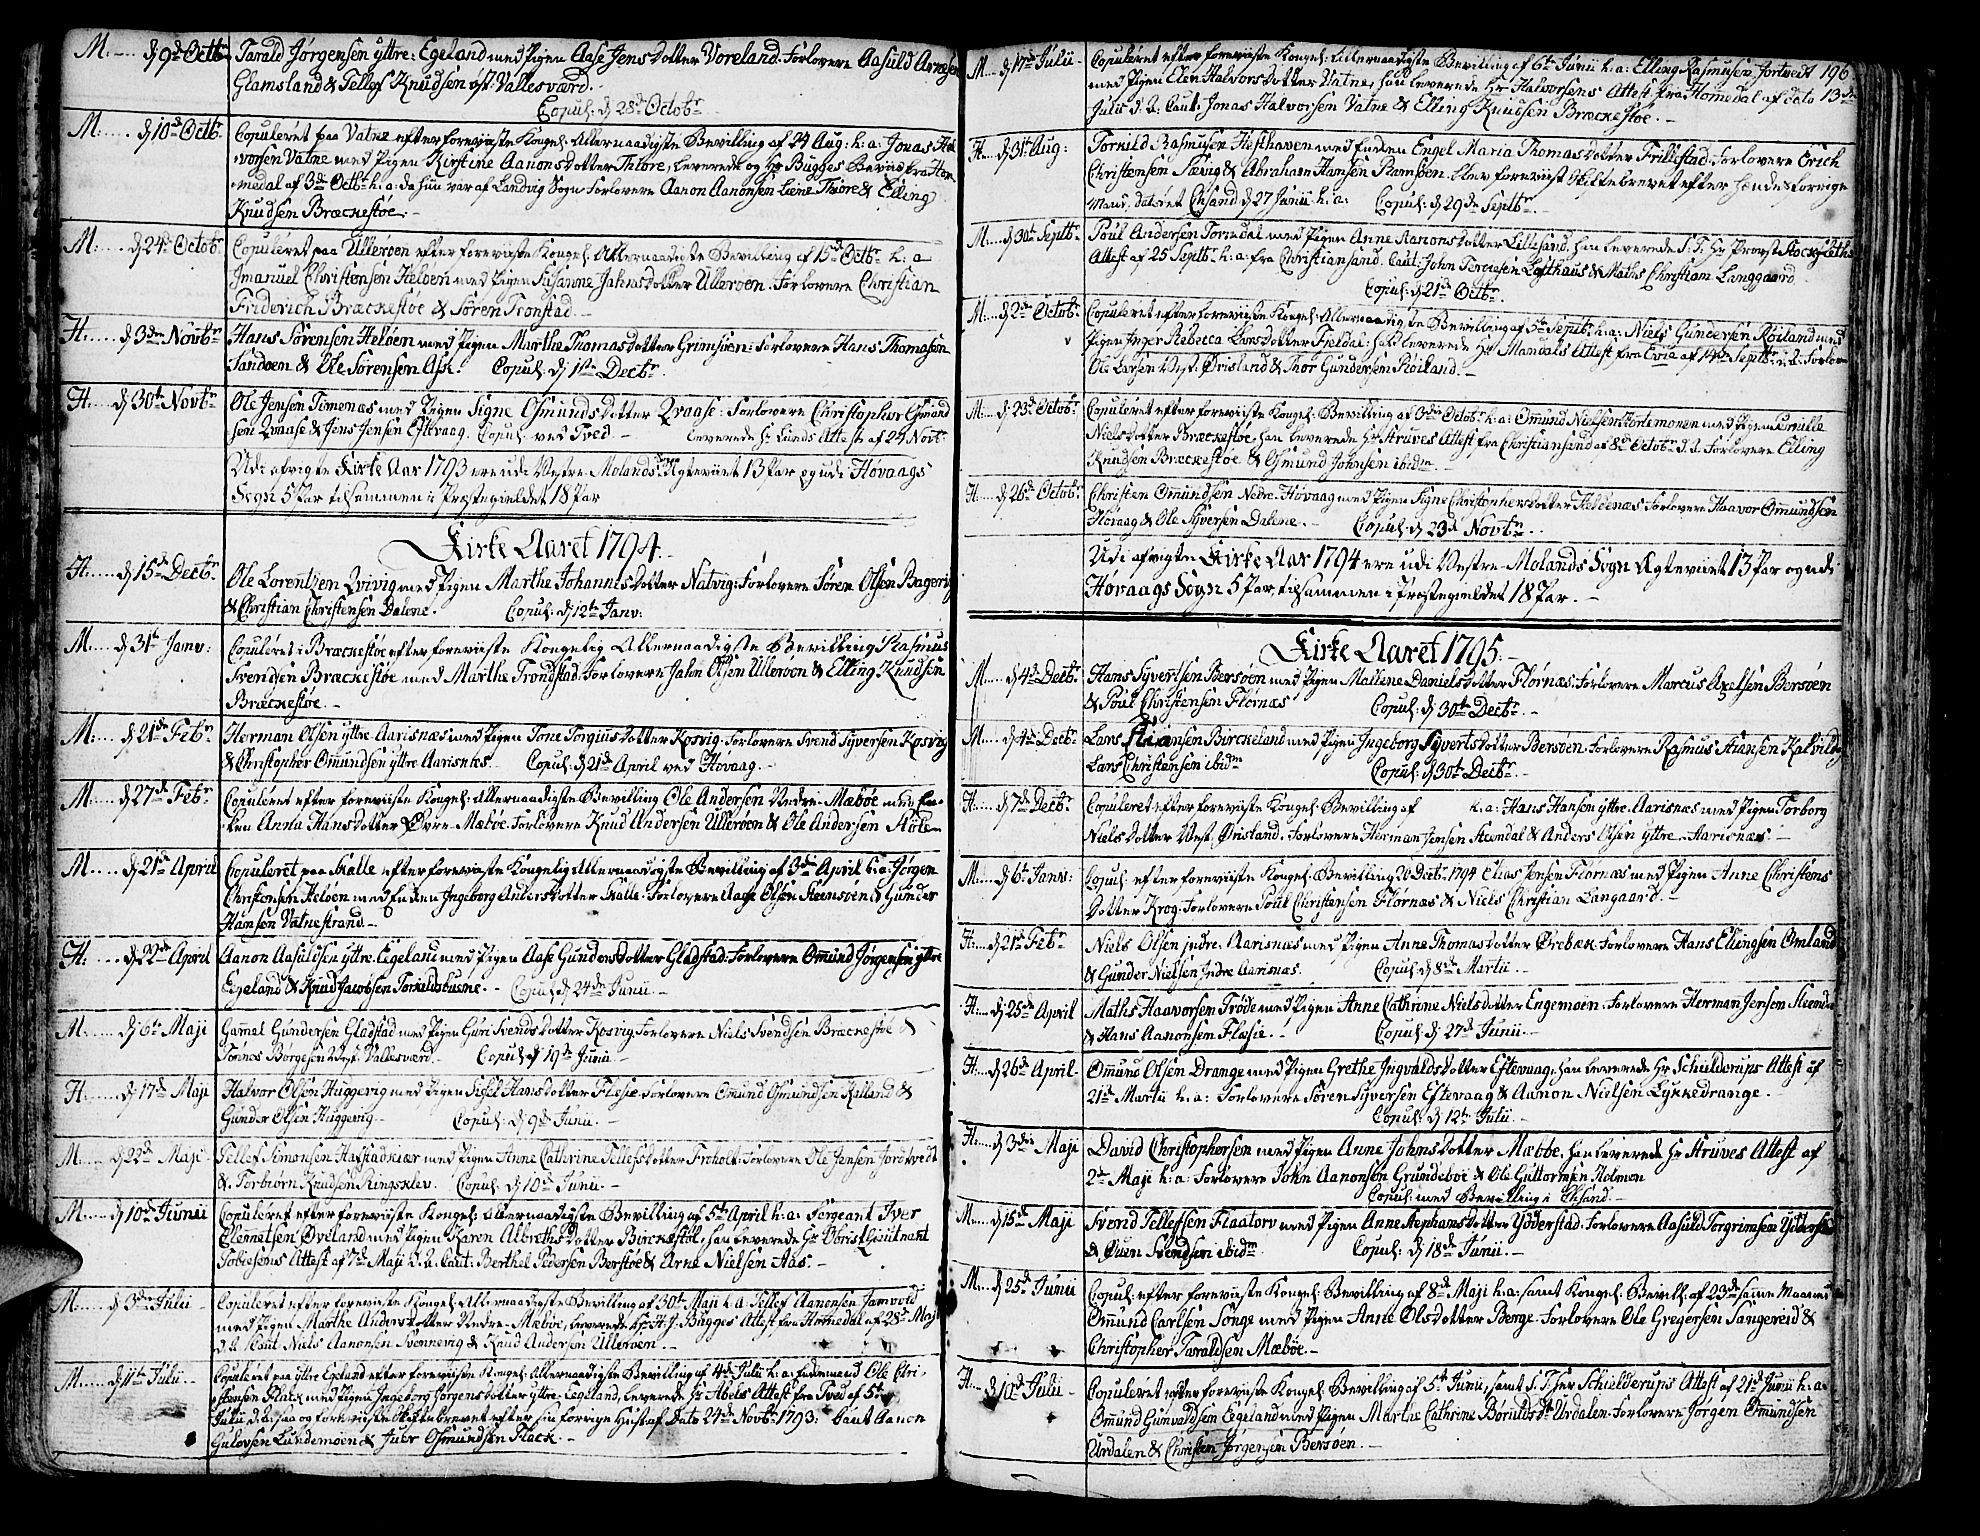 M. d 9de Octbr Tarald Jørgensen yttre Egeland med Pigen Aase Jensdotter Voreland. Forlovere Aasuld Arnesen
Glamsland & Tellef Knudsen øst. Vallesværd.
Copul: d 28de Octobr
M. d 10de Octb. Copuleret paa Vatne efter foreviiste Kongel: Allernaadigste Bevilling af 24 Aug: h:a: Jonas Hal-
vorsen Vatne med Pigen Kirstine Aanonsdotter Thiøre, leverede og Hr Bugges Beviis fra Hom-
medal af 3de Octbr h:a: da hun var af Landvig Sogn. Forlovere Aanon Aanonsen Thiøre & Elling
Knudsen Bræckestøe.
M. d 24de Octobr Copuleret paa Ulleröen efter foreviiste Kongel: Allernaadigste Bevilling af 15de Octbr h:a
Imanuel Christensen Heløen med Pigen Susanne Jahnsdotter Ulleröen. Forlovere Christian
Friderich Bræckestøe & Sören Tronstad.
H. d 3die Novbr Hans Sørensen Heløen med Pigen Marthe Thomasdotter Grimsöen: Forlovere Hans Thomasen
Sandøen & Ole Sørensen Ask. Copul: d 1ste Decbr
H. d 30te Novbr Ole Jensen Timenæs med Pigen Signe Osmundsdotter Qvaase: Forlovere Christopher Osmund
sen Qvaase & Jens Jensen Eftevaag. Copul: ved Tved. leverede Hr Lunds Attest af 24 Novbr
Udi afvigte Kirke Aar 1793 ere udi Vestre Molands Sogn Ægteviet 13 Par og udi Høvaags
Sogn 5 Par tilsammen i Præstegieldet 18 Par
Kirke Aaret 1794.
H. d 15de Decbr Ole Lorentzen Qvivig med Pigen Marthe Johannisdotter Natvig: Forlovere Sören Olsen Bagerie
& Christian Christensen Dalene. Copul: d 12te Janv:
M. d 31te Janv: Copuleret i Bræckestøe efter foreviiste Kongelig Allernaadigste Bevilling Rasmus
Svendsen Bræckestøe med Marthe Trondstad. Forlovere Jahn Olsen Ulleröen & Elling Knudsen
Bræckestøe.
M. d 21de Febr Herman Olsen yttre Aarisnæs med Pigen Tone Torgiusdotter Kosvig. Forlovere Svend Syversen Kosvig
& Christopher Omundsen yttre Aarisnæs. Copul: d 21de April ved Hövaag.
M. d 27de Febr Copuleret efter foreviiste Kongel: Allernaadigste Bevilling Ole Andersen Nedre Mæbøe med En-
ken Anna Hansdotter Øvre Mæbøe. Forlovere Knud Andersen Ulleröen & Ole Andersen
M. d 21de April Copuleret paa Kalle efter foreviiste Kongelig Allernaadigste Bevilling af 3die April h:a: Jørgen
Christensen Heløen med Enken Ingeborg Andersdotter Kalle. Forlovere Aage Olsen Steensøen & Gunder
Hansen Vatnestrand.
H. d 22de April Aanon Aasuldsen yttre Eigeland med Pigen Aase Gundersdotter Gladstad. Forlovere Omund Jørgensen yttre
Egeland & Knud Jacobsen Torkildsbusne. Copul: d 24de Junii
M. d 6te Maji Gamal Gundersen Gladstad med Pigen Guri Svendsdotter Kosvig. Forlovere Niels Svendsen Bræckestøe &
Tönnes Börgesen Vest. Vallesværd. Copul: d 19de Junii
H. d 17de Maji Halvor Olsen Huggevig med Pigen Sidsel Hansdotter Flesie. Forlovere Omund Osmundsen Kalland &
Gunder Olsen Huggevig Copul: d 9de Junii.
M. d 22de Maji Tellef Simonsen Havstadkiær med Pigen Anne Cathrine Tellefsdotter Froholt: Forlovere Ole Jensen Jordtvedt
& Torbiorn Knudsen Ringsklev. Copul: d 10de Junii.
M. d 10de Junii Copuleret efter foreviiste Kongel: Allernaadigste Bevilling af 5te April h:a: Sergeant Iver
Clemetsen Øveland med Pigen Karen Albretsdotter Birckestöl, han leverede Hr Obrist Lieutnant
Attest af 7de Maji d:a: Caut: Berthel Pedersen Berstøe & Arne Nielsen Aas.
M. d 3die Julii Copuleret efter foreviiste Kongel: Allernaadigste Bevilling af 30te Maji h:a: Tellef Aanonsen
med Pigen Marthe Andersdotter Nedre Mæbøe, leverede Hr Bugges Attest fra Hommedal af 28de Maji
d:a: Caut Niels Aanonsen Svennevig & Knud Andersen Ulleröen.
M. d 11te Julii Copuleret paa yttre Egeland efter foreviiste Kongel: Allernaadigste Bevilling af 4de Julii h:a: Enkemand Ole Chri-
stensen Flack med Pigen Ingeborg Jørgensdotter yttre Egeland, leverede Hr Abels Attest fra Tved af 5te
Julii d:a: saa og foreviiste Skiftebrevet efter sin forrige Hustr af Dato 24de Novbr 1793: Caut Aanon
Gulovsen Lundemoen & Juer Osmundsen Flack.
196
M. d 17de Julii Copuleret efter foreviiste Kongel: Allernaadigste Bevilling af 6te Junii h:a: Elling Rasmusen Jortvedt
med Pigen Elen Halvorsdotter Vatne, han leverede Hr Halvorsens Attest fra Homedal af dato 13de
Julii d:a: Caut: Jonas Halvorsen Vatne & Elling Knudsen Bræckestøe.
H. d 31te Aug: Tornild Rasmusen Hesthaven med Enken Engel Maria Thomasdotter Frillestad. Forlovere Erich
Christensen & Abraham Hansen Ramsøen. blev foreviist Skiftebrevet efter hendes forrige
Mand, dateret Chsand d 27 Junii h:a: Copul: d 29de Septbr.
M. d 30te Septbr Poul Andersen Torredal med Pigen Anne Aanonsdotter Lillesand, han leverede S.T. Hr Provst
Attest af 25 Septbr h:a: fra Christiansand. Caut: John Terckesen Lofthuus & Mathis Christian Langgaard.
Copul: d 21de Octbr.
M. d 2de Octobr Copuleret efter foreviiste Kongel: Allernaadigste Bevilling af 5te Septbr h:a: Niels Gundersen Röiland med
Pigen Inger Rebecca Larsdotter Fieldal: han leverede Hr Mandals Attest fra Evie af 14de Septbr d:a: Forlovere
Ole Larsen Vest. Ørisland & Thor Gundersen Röiland.
M. d 23de Octobr Copuleret efter foreviiste Kongel: Bevilling af 3die Octobr h:a: Omund Nielsen Kortemonen med Pigen Pernille
Nielsdotter Bræckestøe, han leverede Hr Struves Attest fra Christiansand af 8de Octobr d:a: Forlovere Elling
Knudsen Bræckestøe & Osmund Johnsen ibidm
H. d 26de Octobr Christen Omundsen Nedre Høvaag med Pigen Signe Christophersdotter Forlovere Haavor Omundsen
Høvaag & Ole Syversen Dalene. Copul: d 23de Novbr
Udi afvigte Kirke Aar 1794 ere udi Vestre Molands Sogn Ægteviet 13 Par og udi
Høvaags Sogn 5 Par, tilsammen i Præstegieldet 18 Par.
Kirke Aaret 1795.
M. d 4de Decbr Hans Syvertsen Bersöen med Pigen Mallene Danielsdotter Flörnæs. Forlovere Marcus Axelsen Bersöen
& Poul Christensen Flornæs Copul: d 30te Decbr
M. d 4de Decbr Lars Stiansen Birckeland med Pigen Ingeborg Syvertsdotter Bersöen. Forlovere Rasmus Stiansen Kalvild &
Lars Christensen ibidm Copul: d 30te Decbr.
H. d 7de Decbr Copuleret efter foreviiste Kongel: Bevilling af h:a: Hans Hansen yttre Aarisnæs med Pigen Torborg
Nielsdotter Vest. Ørisland. Forlovere Herman Jensen Steendal & Anders Olsen yttre Aarisnæs
M. d 6te Janv: Copul: efter foreviiste Kongel: Bevilling 20 Decbr 1794 Elias Jensen Flörnæs med Pigen Anne Christens
Dotter Krog. Forlovere Poul Christensen Flörnæs & Niels Christian Langaard.
H. d 21de Febr Niels Olsen indre Aarisnæs med Pigen Anne Thomasdotter Ørebæk. Forlovere Hans Ellingsen Omland
& Gunder Nielsen Indre Aarisnæs. Copul: d 8de Martii.
H. d 25de April Mathis Haavorsen Trøde med Pigen Anne Cathrine Nielsdotter Engemoen. Forlovere Herman Jensen Steendal
& Hans Aanonsen Flæsie. Copul: d 27de Junii
H. d 26de April Omund Olsen Drange med Pigen Grethe Ingvaldsdotter Eftevaag, han leverede Hr Schielderups Attest af
21de Martii h:a: Forlovere Søren Syversen Eftevaag & Aanon Nielsen Lykkedrange.
Copul: d 12te Julii
H. d 3die Maji David Christophersen med Pigen Anne Johnsdotter Mæbøe, han leverede Hr Struves Attest af
2de Maji h:a: Forlovere John Aanonsen Grundeboe & Ole Guttormsen Holmen
Copul: med Bevilling i Chsand.
M. d 15de Maji Svend Tellefsen Flaatorv med Pigen Anne Stephansdotter Ydderstad. Forlovere Aasuld Torgrimsen Ydderstad
& Ouen Svendsen ibidm Copul: d 18de Junii
M. d 25de Junii Copul: efter foreviiste Kongel: Bevilling af 8de Maji h:a: samt Kongel: Bevill: af 23de samme Maaned
Omund Carlsen Songe med Pigen Anne Olsdotter Berge. Forlovere Ole Gregersen Sangereid &
Christopher Taraldsen Mæbøe.
H. d 10de Julii Copuleret efter foreviiste Kongel: Bevilling af 5te Junii, samt S.T. Hr Schielderups Attest af 21de Junii h:a:
Omund Gunvaldsen Eigeland med Pigen Marthe Cathrine Urdalen. Forlovere Jørgen Omundsen
Urdalen & Christen Jørgensen Bersöen.